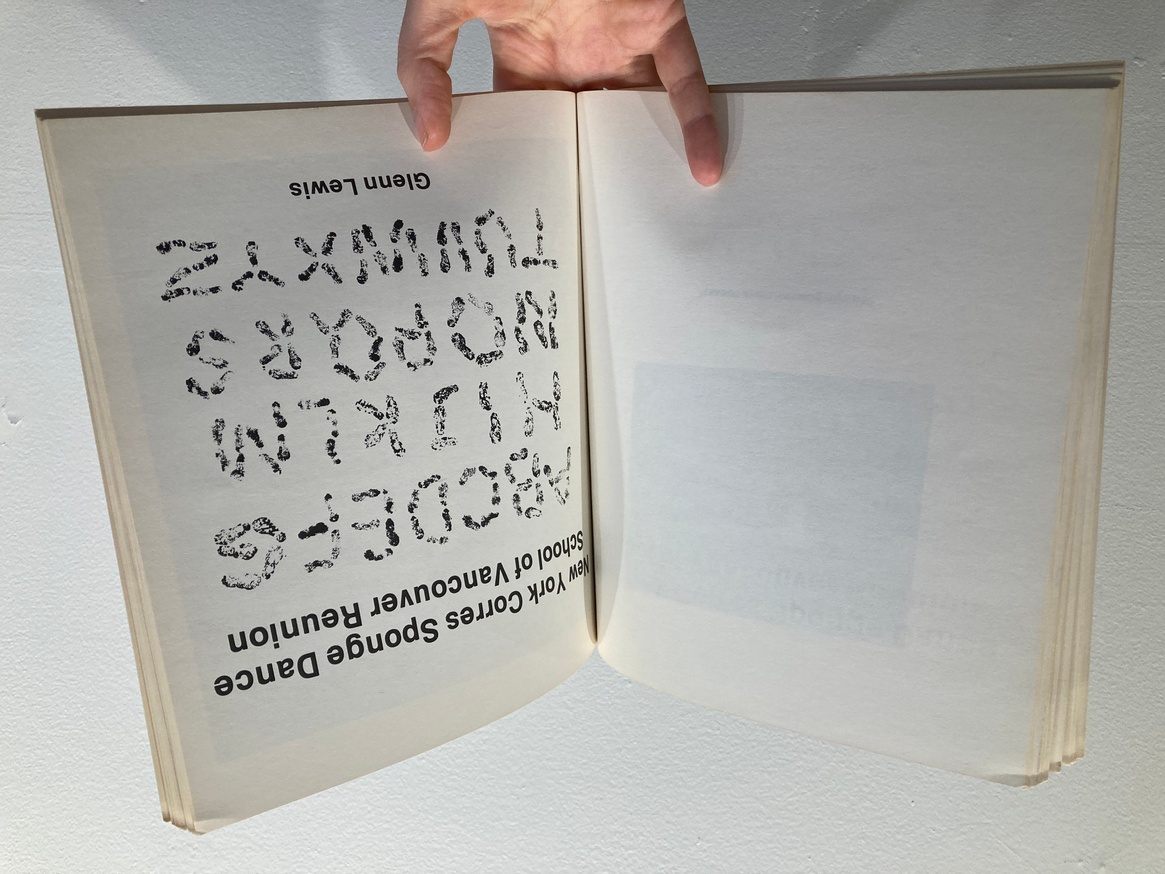 New York Corres Sponge Dance
School of Vancouver Reunion
ABCDEFG
HIJKLM
NOPQRS
TUVWXYZ
Glenn Lewis